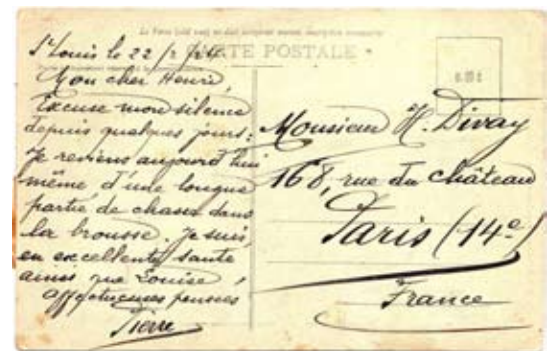 CARTE POSTALE
St Louis le 22/2/24
Mon cher Henri,
Excuse mon silence
depuis quelques jours :
Je reviens aujourd'hui
même d'une longue
partie de chasse dans
la brousse. Je suis
en excellente santé
ainsi que Louise,
affectueuses pensées
Pierre
Monsieur H. Divay
168, rue du château
Paris (14e)
France